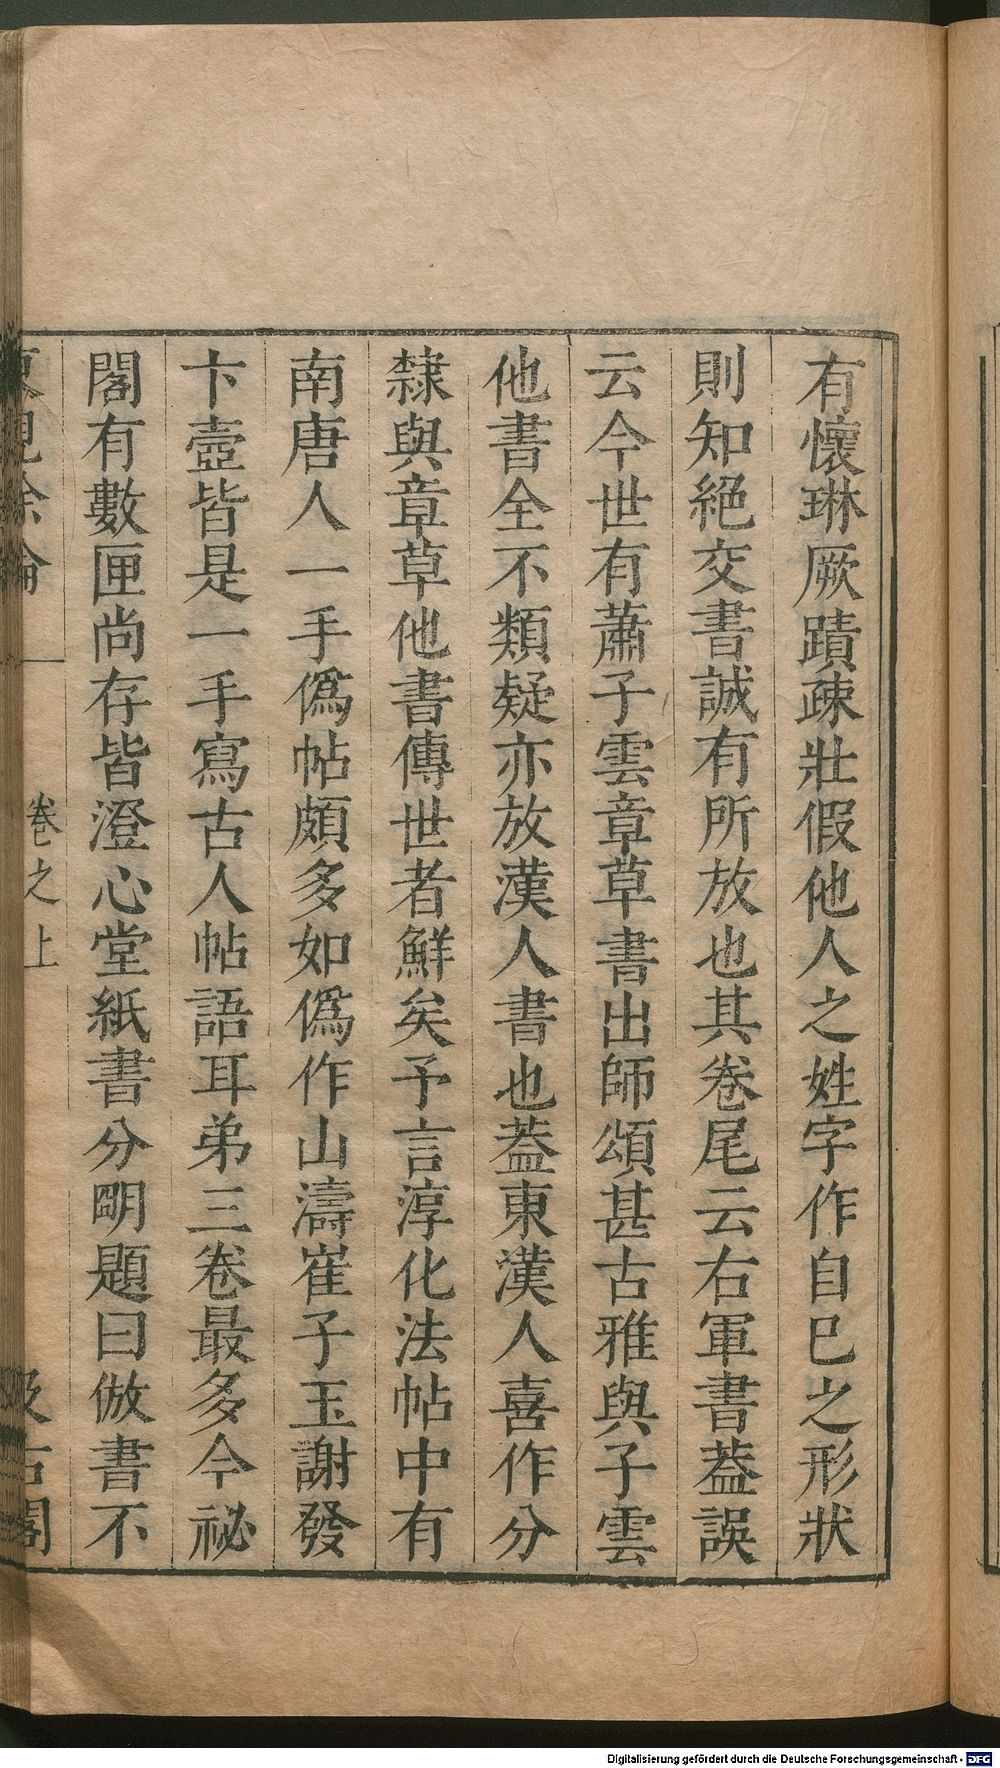 有懷琳厥蹟疎壯假他人之姓字作自巳之形狀
則知絕交書誠有所放也其卷尾云右軍書葢誤
云今世有蕭子雲章草書出師頌甚古雅與子雲
他書全不類疑亦放漢人書也葢東漢人喜作分
隸與章草他書傳世者鮮矣予言淳化法帖中有
南唐人一手僞帖頗多如僞作山濤崔子玉謝發
卞壼皆是一手寫古人帖語耳弟三卷最多今祕
閣有數匣尚存皆澄心堂紙書分明題曰倣書不
東觀餘論 卷之上 汲古閣
Digitalisierung gefördert durch die Deutsche Forschungsgemeinschaft - DFG